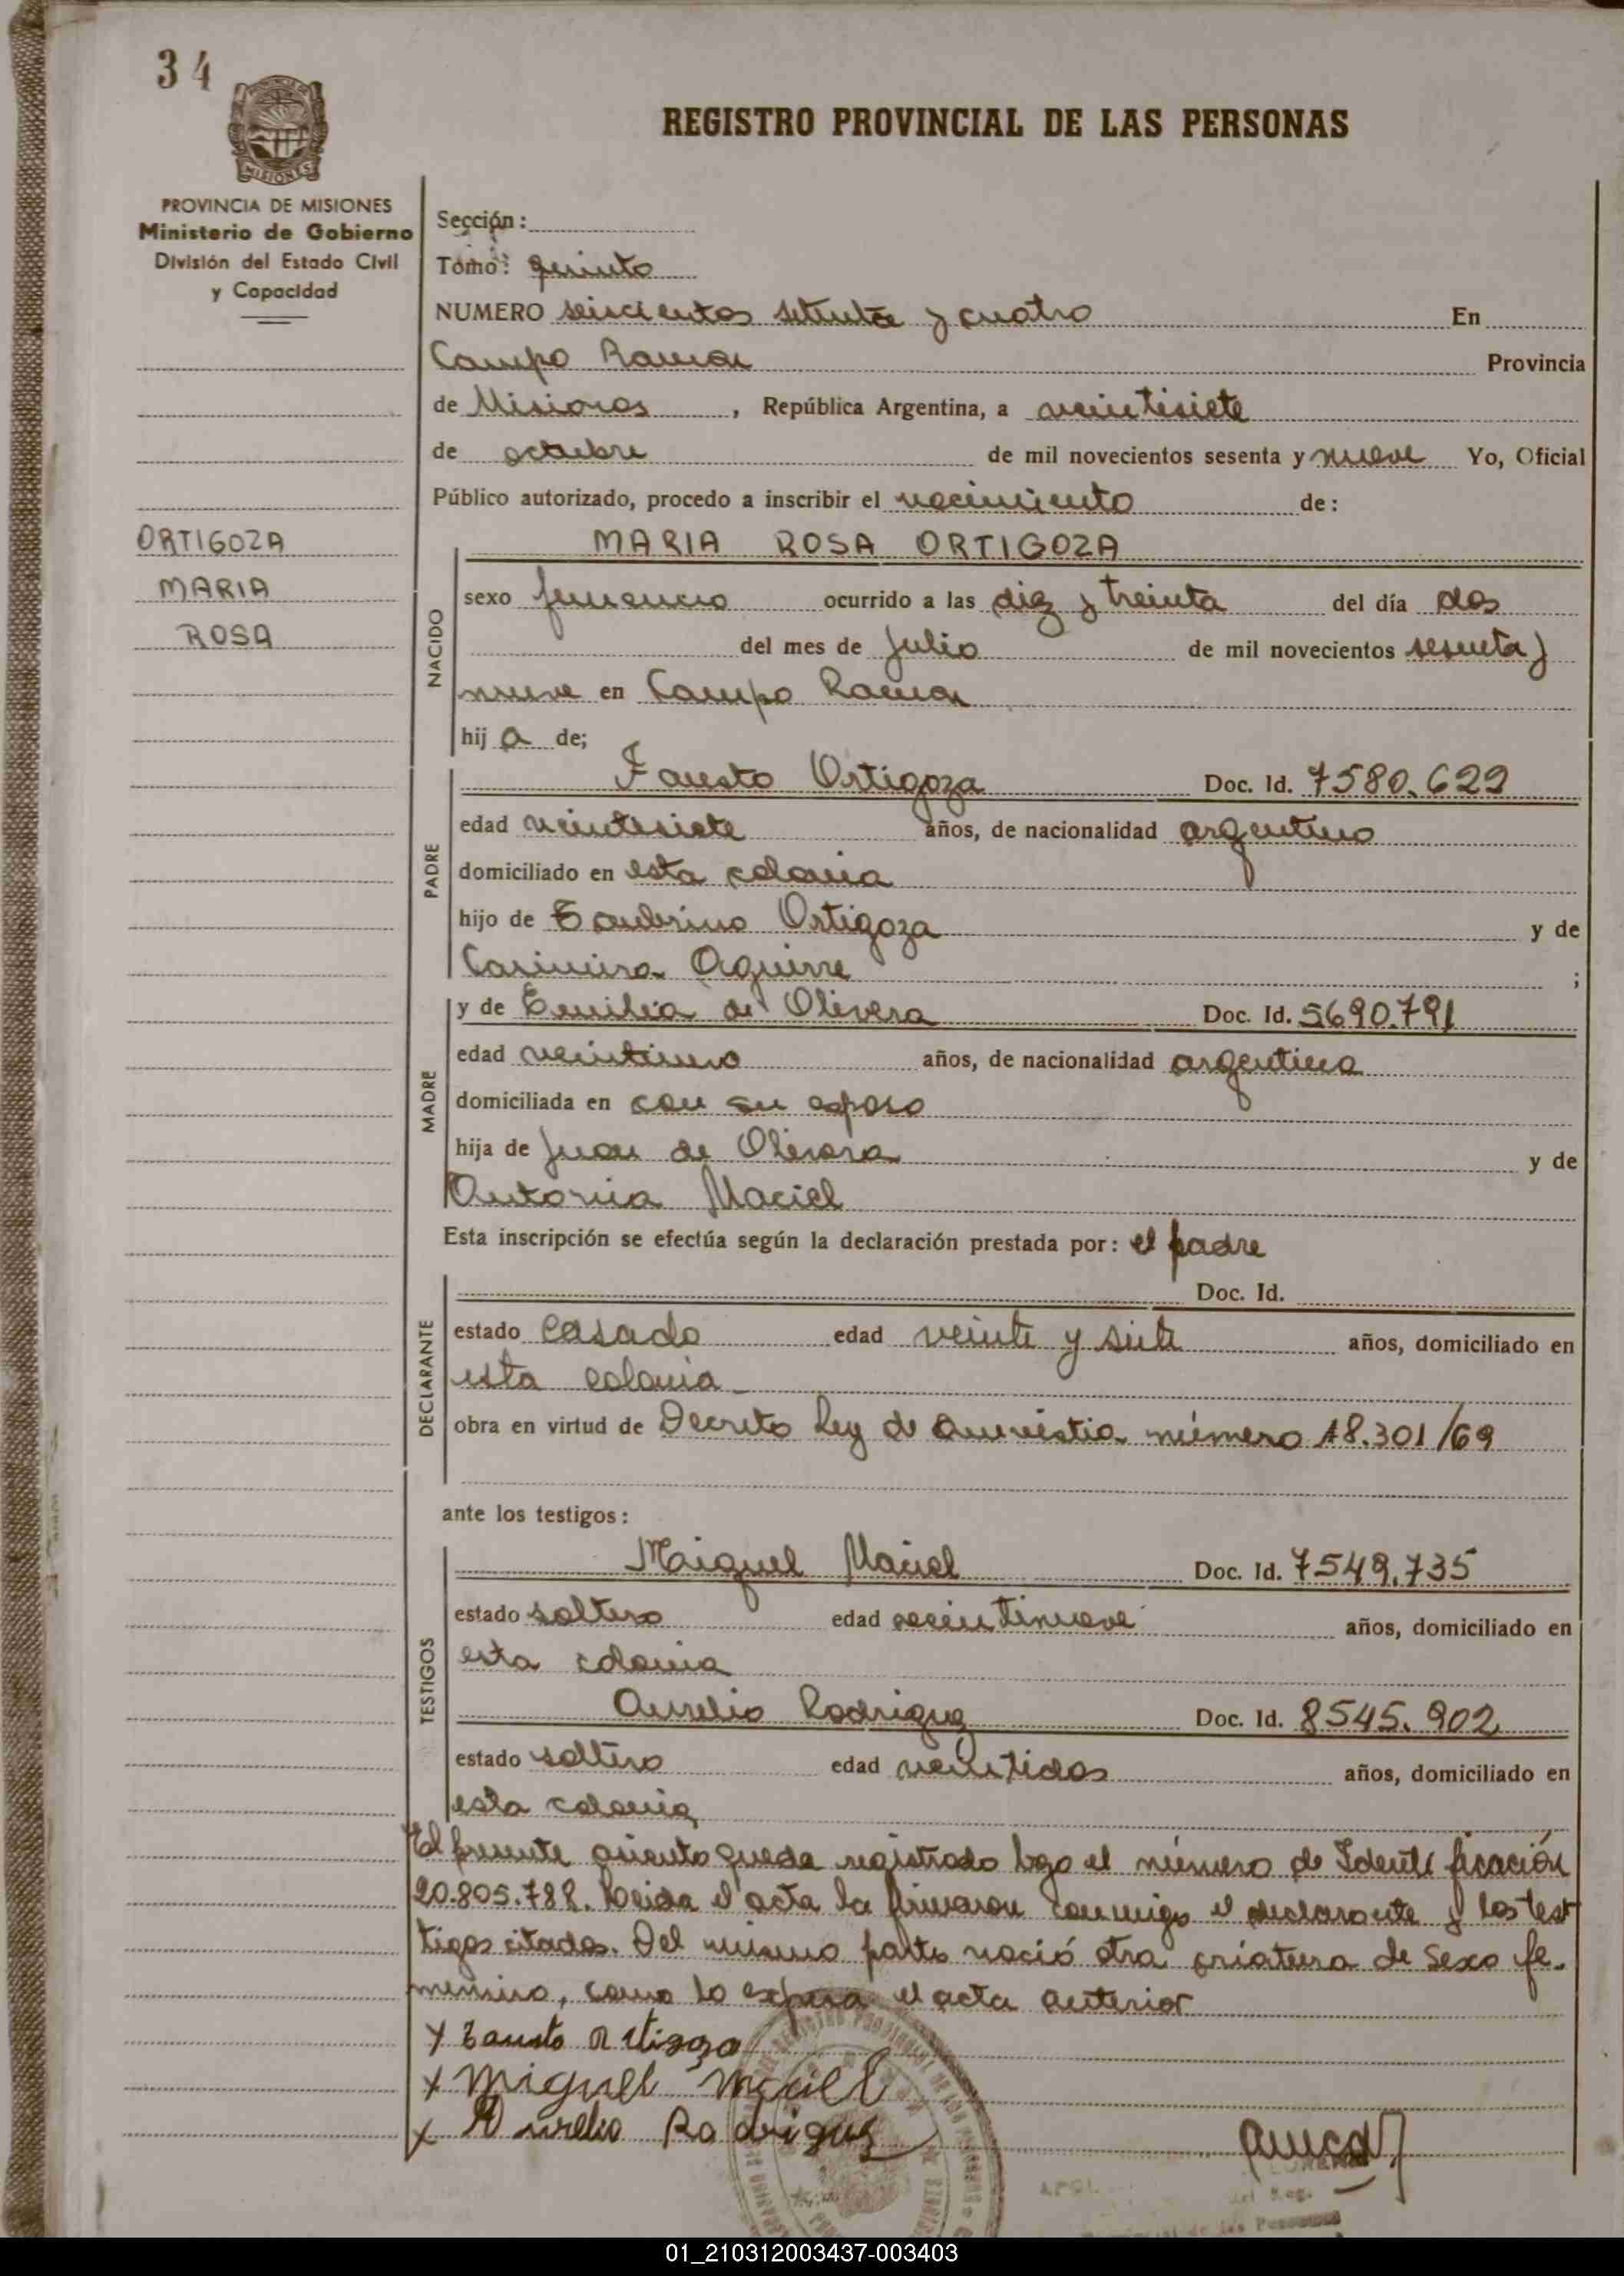 34
MISIONES
REGISTRO PROVINCIAL DE LAS PERSONAS
PROVINCIA DE MISIONES
Ministerio de Gobierno
División del Estado Civil
y Capacidad
Sección:
Tomo: quinto
NUMERO seiscientos setenta y cuatro En
Campo Ramon Provincia
de Misiones, República Argentina, a veintisiete
de octubre de mil novecientos sesenta y nueve Yo, Oficial
Público autorizado, procedo a inscribir el nacimiento de:
ORTIGOZA
MARIA
ROSA
MARIA ROSA ORTIGOZA
NACIDO
sexo femenino ocurrido a las diez y treinta del día dos
del mes de julio de mil novecientos sesenta y
nueve en Campo Ramon
hij a de;
PADRE
Fausto Ortigoza Doc. Id. 7580.629
edad veintisiete años, de nacionalidad argentino
domiciliado en esta colonia
hijo de Ortigoza y de
Casimira Aguirre ;
MADRE
y de Emilia de Olivera Doc. Id. 5690.791
edad veintiuno años, de nacionalidad argentina
domiciliada en con su esposo
hija de Juan de Olivera y de
Antonia Maciel
Esta inscripción se efectúa según la declaración prestada por: el padre
DECLARANTE
Doc. Id.
estado casado edad veinte y siete años, domiciliado en
esta colonia
obra en virtud de Decreto Ley de Amnistia número 18.301/69
ante los testigos:
TESTIGOS
Miguel Maciel Doc. Id. 7549.735
estado soltero edad veintinueve años, domiciliado en
esta colonia
Aurelio Rodriguez Doc. Id. 8545.902
estado soltero edad veintidos años, domiciliado en
esta colonia
El presente asiento queda registrado bajo el número de Identificación
20.805.788. Leida el acta la firmaron conmigo el declarante y los test
tigos citados. Del mismo parto nació otra criatura de sexo fe-
menino, como lo expresa el acta anterior
x Fausto Ortigoza
x Miguel Maciel
x Aurelio Rodriguez
01_210312003437-003403